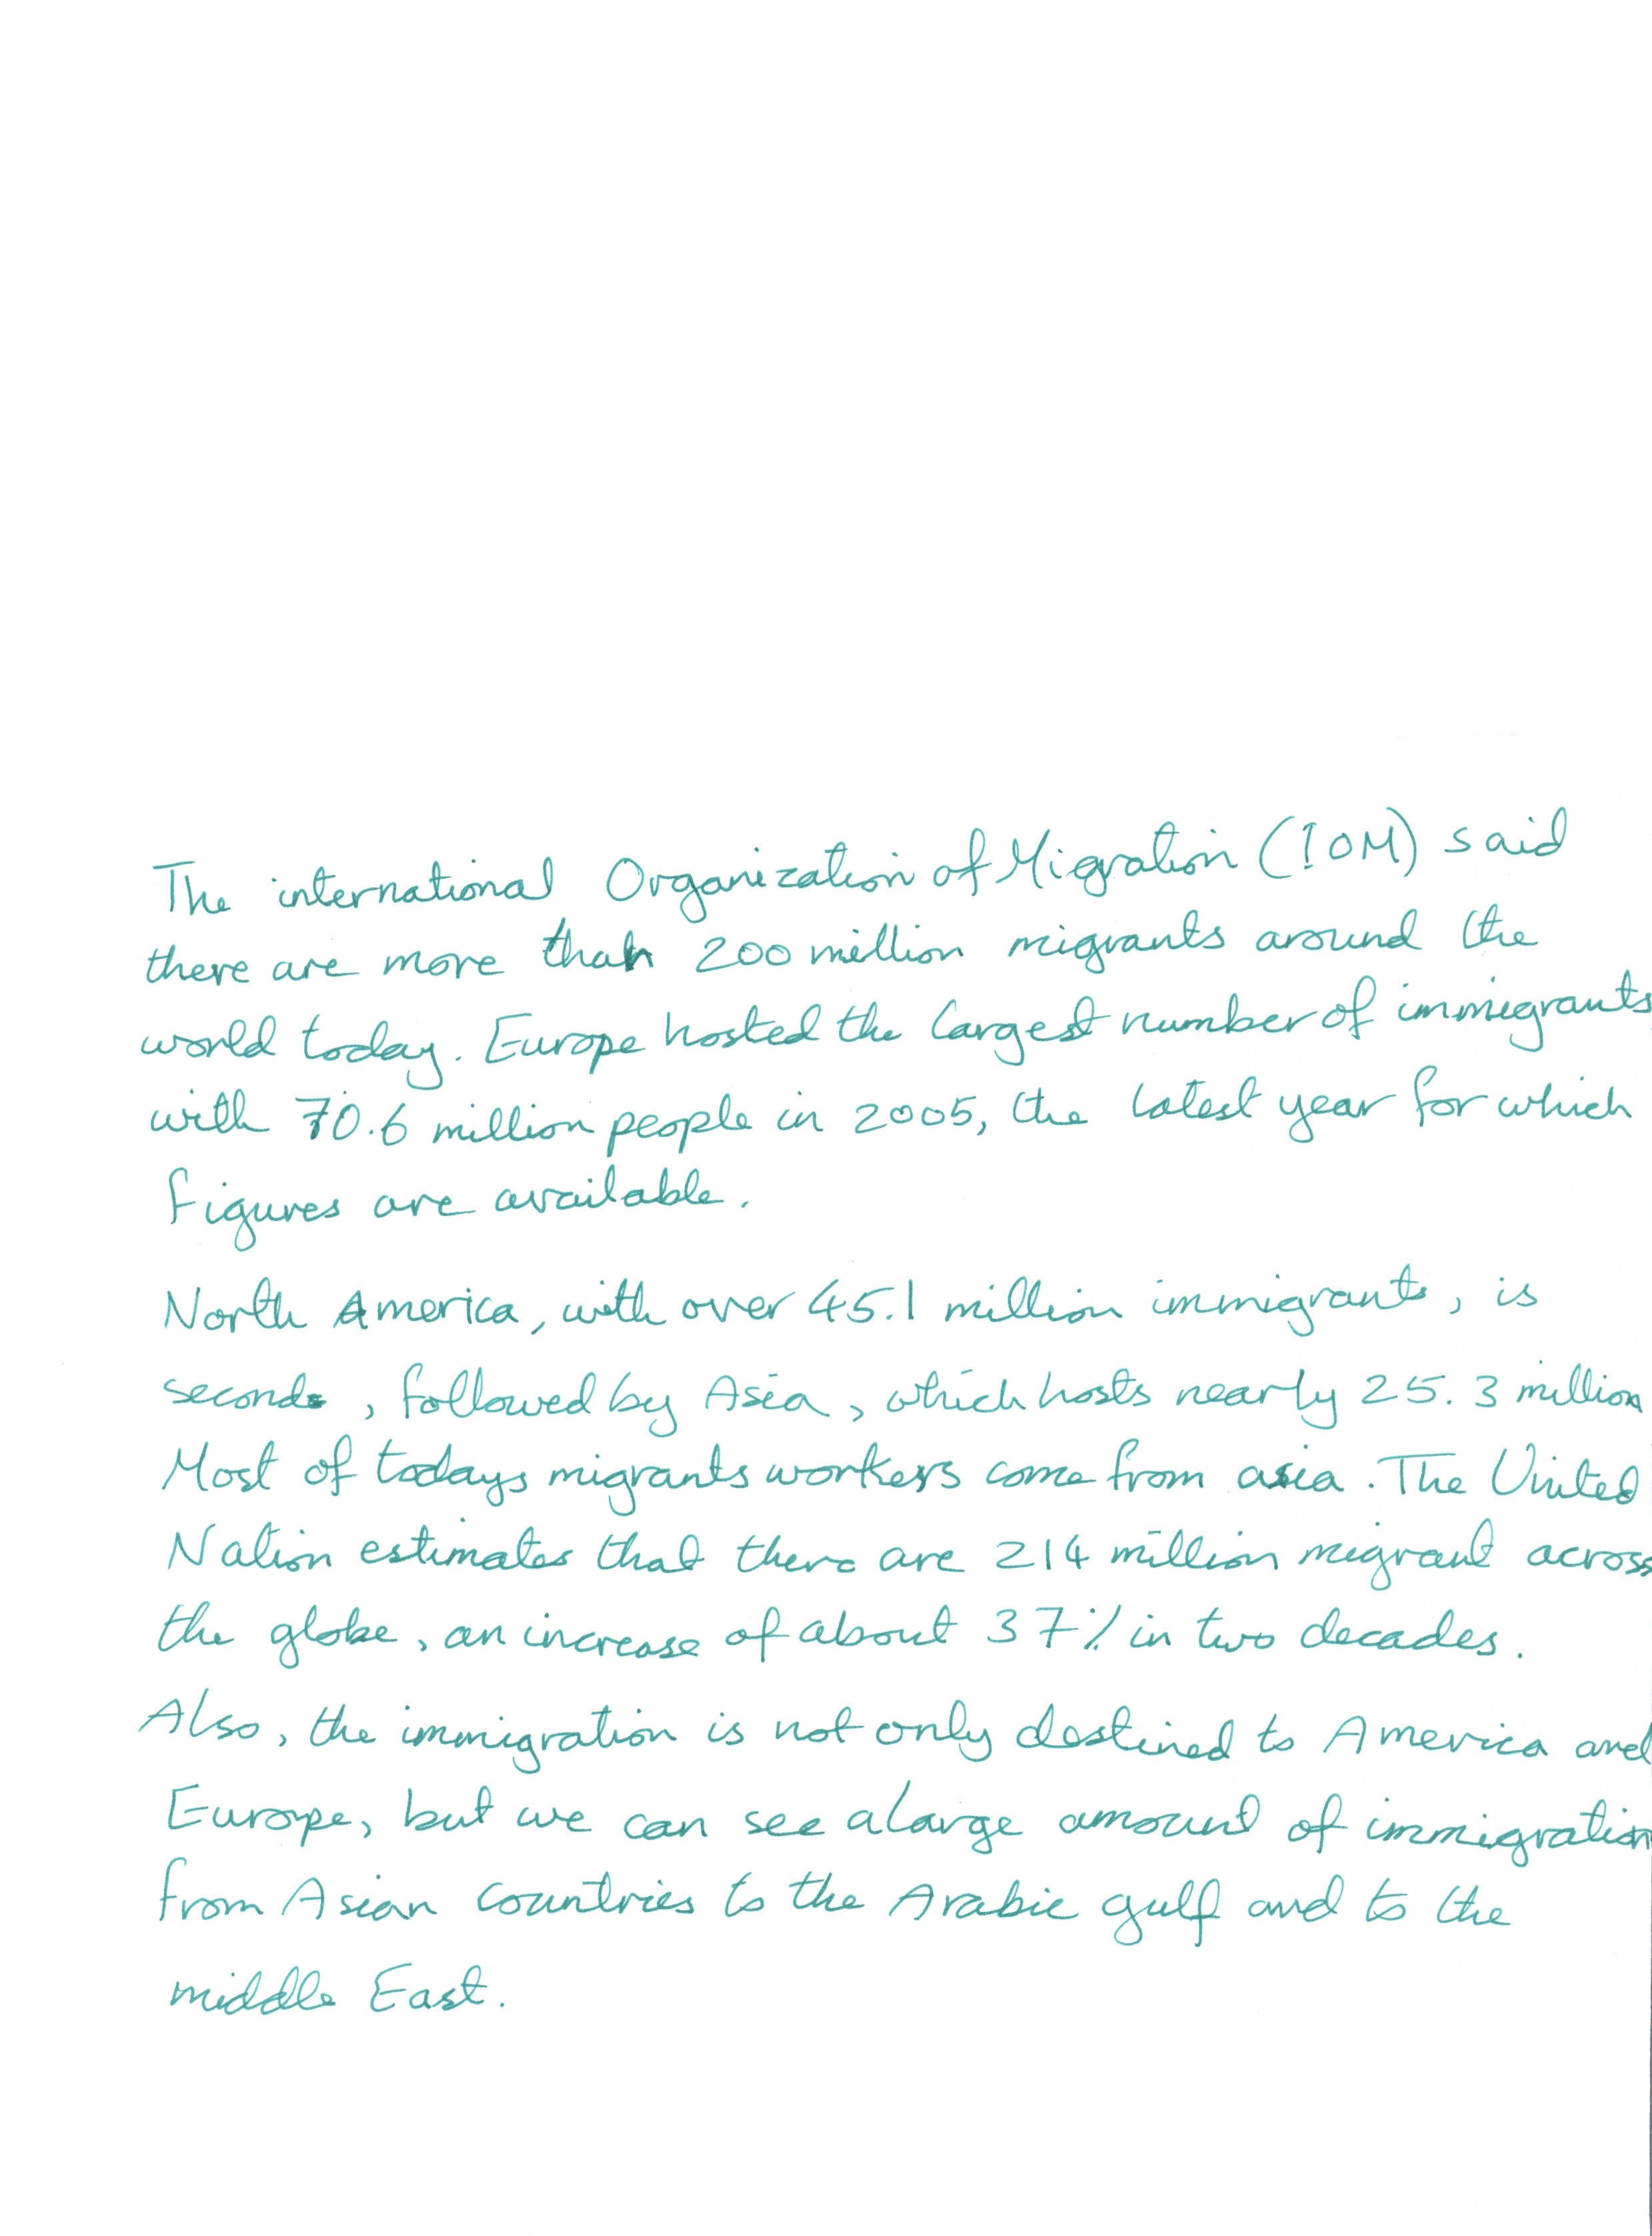 The international Organization of Migration (IOM) said
there are more than 200 million migrants around the
world today. Europe hosted the largest number of immigrants
with 70.6 million people in 2005, the latest year for which
figures are available.
North America, with over 45.1 million immigrants, is
second, followed by Asia, which hosts nearly 25.3 million
Most of todays migrants workers come from asia. The United
Nation estimates that there are 214 million migrant across
the globe, an increase of about 37% in two decades.
Also, the immigration is not only destined to America and
Europe, but we can see a large amount of immigration
from Asian countries to the Arabic gulf and to the
middle East.